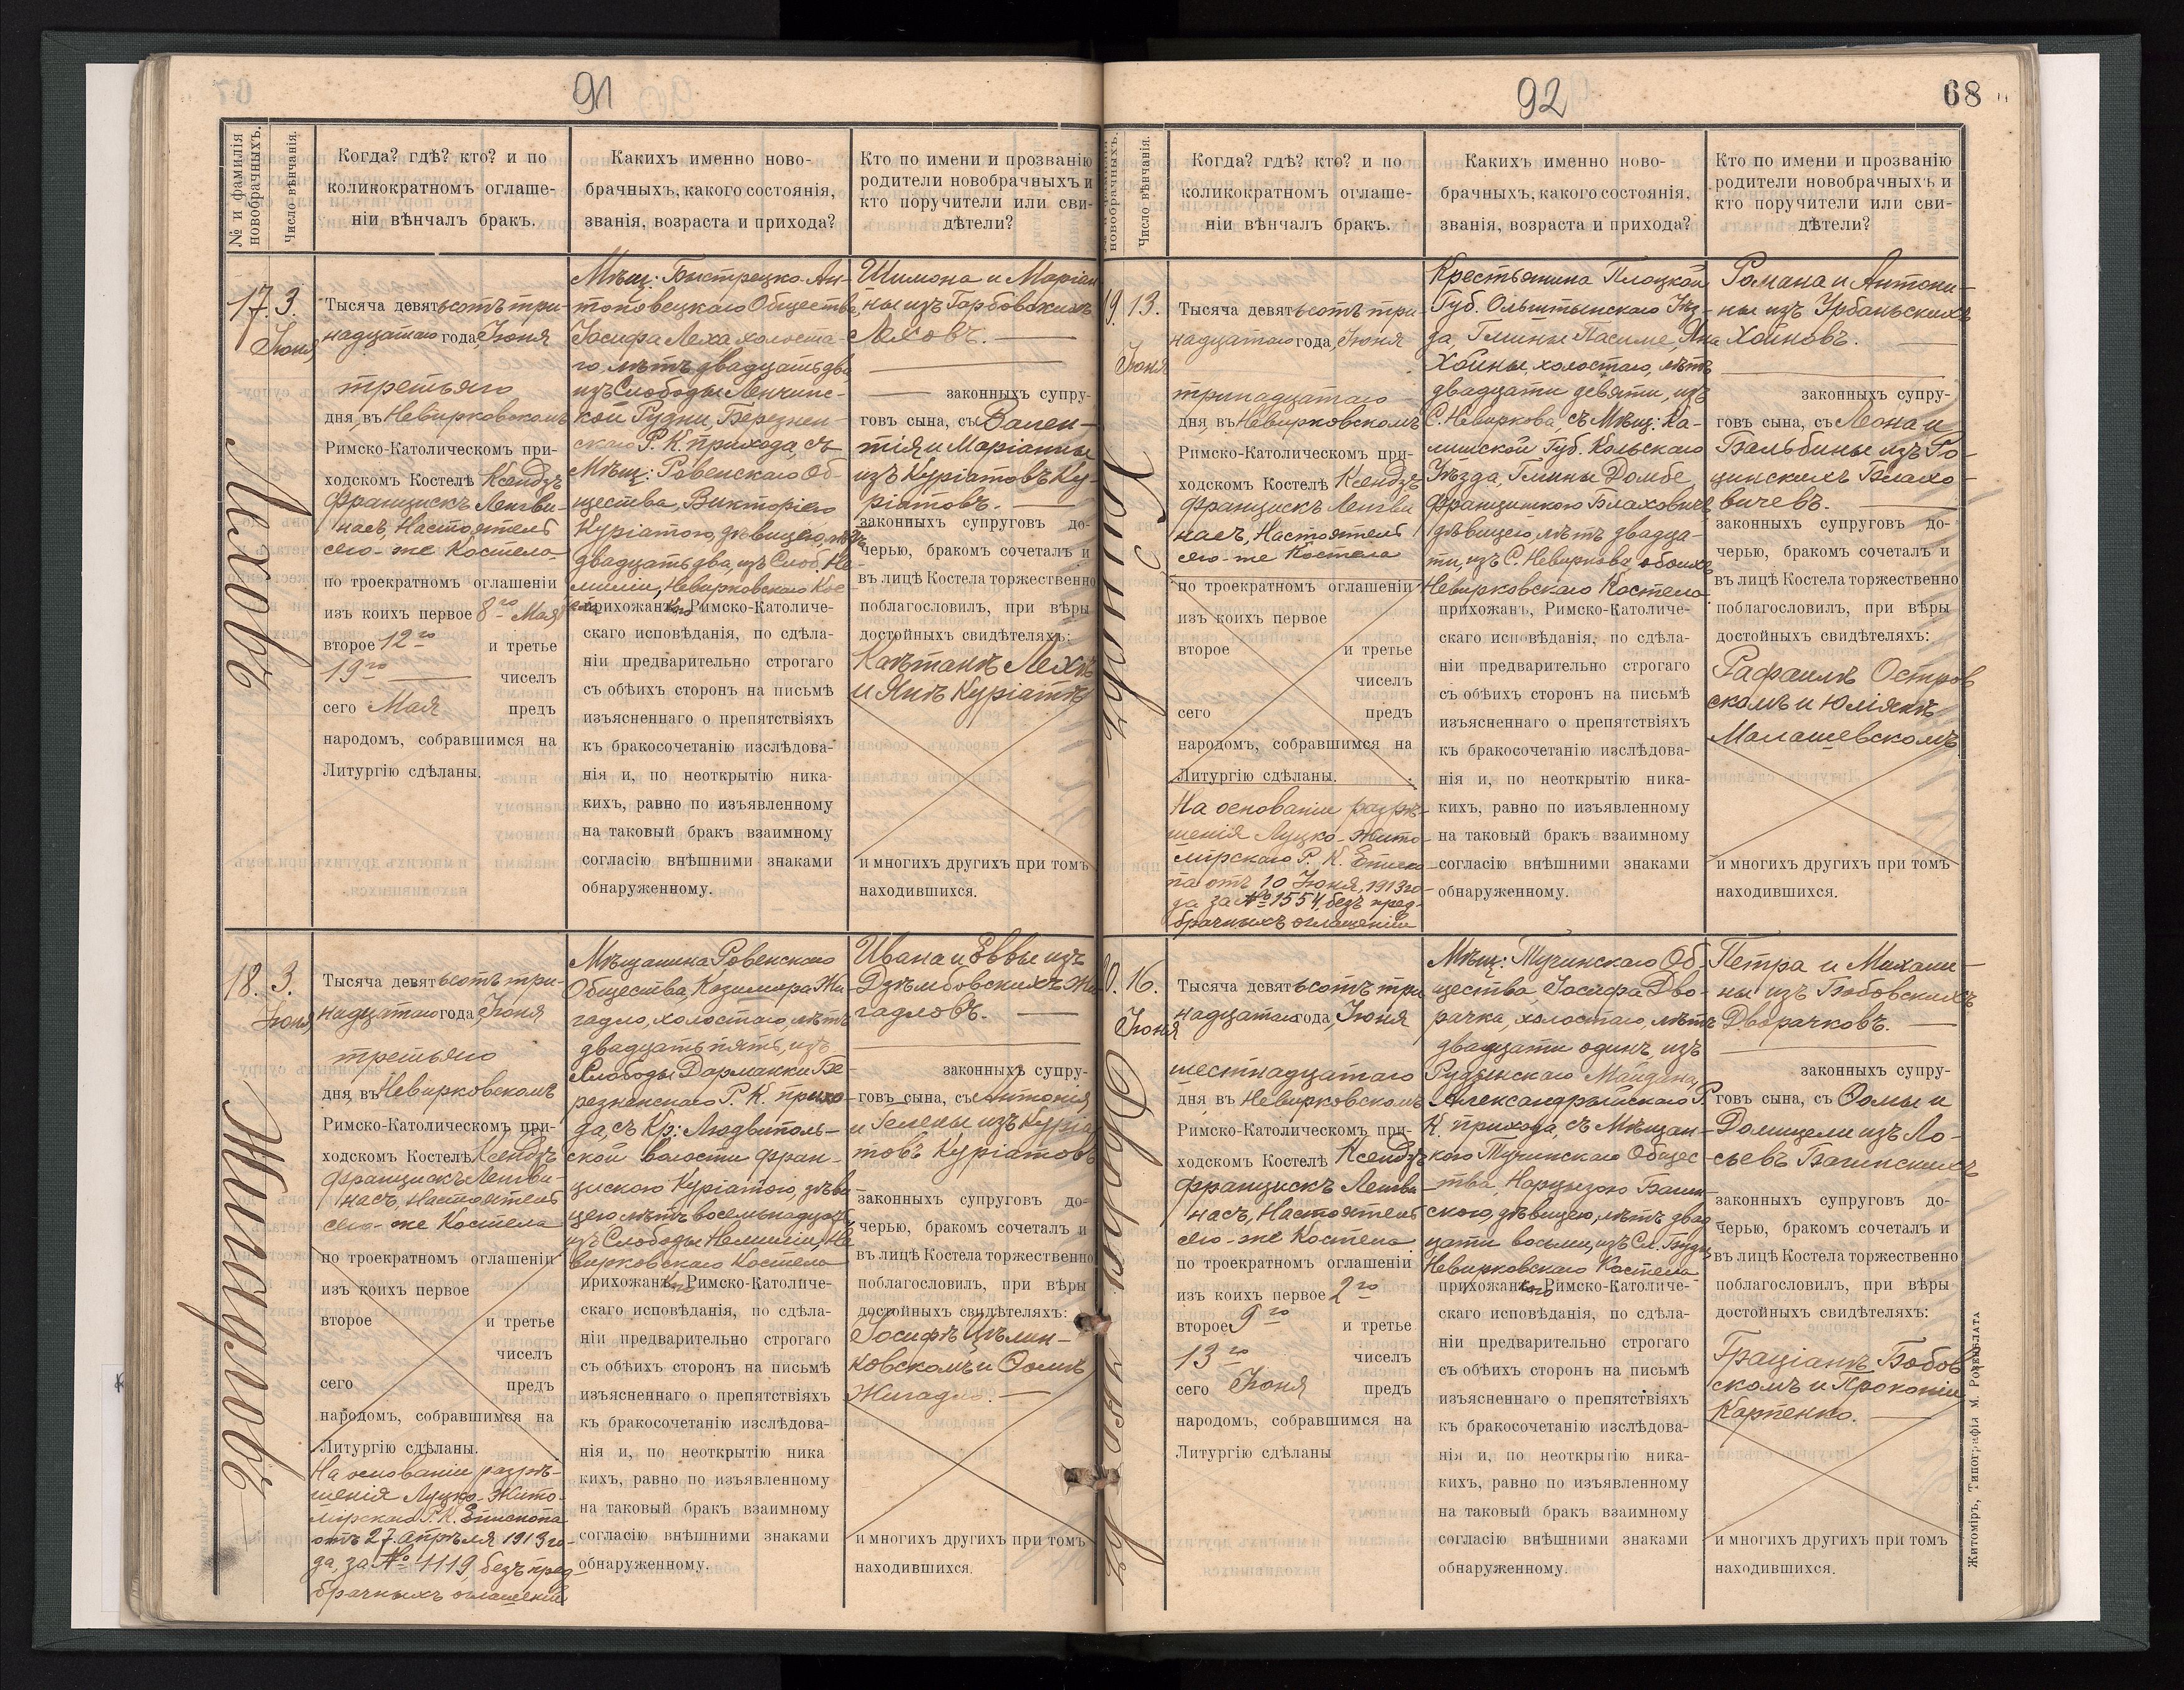 91
№ и фамилія
новобрачныхъ.
Число вѣнчанія.
Когда? гдѣ? кто? и по
коликократномъ оглаше-
ніи вѣнчалъ бракъ.
Какихъ именно ново-
брачныхъ, какого состоянія,
званія, возраста и прихода?
Кто по имени и прозванію
родители новобрачныхъ и
кто поручители или сви-
дѣтели?
17. 3.
Іюня
Леховъ
Тысяча девятьсотъ три-
надцатаго года, Іюня
третьяго
дня, въ Невирковскомъ
Римско-Католическомъ при-
ходскомъ Костелѣ Ксендзъ
Францискъ Ленгви-
насъ, Настоятель
сего-же Костела
по троекратномъ оглашеніи
изъ коихъ первое 8го Мая
второе 12го и третье
19го чиселъ
сего Мая предъ
народомъ, собравшимся на
Литургію сдѣланы.
Мѣщ: Быстрецко-Ан-
тоновецкаго Общества,
Іосифа Леха холоста-
го, лѣтъ двадцать два,
изъ Слободы Ленчинс-
кой Гудни, Березнен
скаго Р. К. прихода, съ
Мѣщ: Ровенскаго Об-
щества, Викторіею
Куріатою, дѣвицею, лѣтъ
двадцать два, изъ Слоб. Не
лишіи, Невирковскаго Кос
тела прихожанкою Римско-Католиче-
скаго исповѣданія, по сдѣла-
ніи предварительно строгаго
съ обѣихъ сторонъ на письмѣ
изъясненнаго о препятствіяхъ
къ бракосочетанію изслѣдова-
нія и, по неоткрытію ника-
кихъ, равно по изъявленному
на таковый бракъ взаимному
согласію внѣшними знаками
обнаруженному.
Шимона и Маріан
ны изъ Гарбовскихъ
Леховъ.
законныхъ супру-
говъ сына, съ Вален-
тія и Маріанны
изъ Куріатовъ Ку-
ріатовъ.
законныхъ супруговъ до-
черью, бракомъ сочеталъ и
въ лицѣ Костела торжественно
поблагословилъ, при вѣры
достойныхъ свидѣтеляхъ:
Каэтанѣ Лехѣ
и Янѣ Куріатѣ
и многихъ другихъ при томъ
находившихся.
18. 3.
Іюня
Жигадловъ
Тысяча девятьсотъ три-
надцатаго года, Іюня
третьяго
дня, въ Невирковскомъ
Римско-Католическомъ при-
ходскомъ Костелѣ Ксендзъ
Францискъ Ленгви-
насъ, Настоятель
сего-же Костела
по троекратномъ оглашеніи
изъ коихъ первое
второе и третье
чиселъ
сего предъ
народомъ, собравшимся на
Литургію сдѣланы.
На основаніи разрѣ-
шенія Луцко-Жито-
мірскаго Р. К. Епископа
отъ 27 апрѣля 1913 го-
да, за № 1119, безъ пред-
брачныхъ оглашеній
Мѣщанина Ровенскаго
Общества, Казимира Жи-
гадло, холостаго, лѣтъ
двадцать пять, изъ
Слободы Дарманки Бе
резненскаго Р. К. прихо-
да, съ Кр: Людвиполь-
ской волости Фран-
цискою Куріатою, дѣви
цею лѣтъ восемьнадцать,
изъ Слободы Нелишіи, Не
вирковскаго Костела
прихожанкою Римско-Католиче-
скаго исповѣданія, по сдѣла-
ніи предварительно строгаго
съ обѣихъ сторонъ на письмѣ
изъясненнаго о препятствіяхъ
къ бракосочетанію изслѣдова-
нія и, по неоткрытію ника
кихъ, равно по изъявленному
на таковый бракъ взаимному
согласію внѣшними знаками
обнаруженному.
Ивана и Еввы изъ
Дзѣмбовскихъ Жи
гадловъ.
законныхъ супру-
говъ сына, съ Антонія
и Гелены изъ Куріа
товъ Куріатовъ
законныхъ супруговъ до-
черью, бракомъ сочеталъ и
въ лицѣ Костела торжественно
поблагословилъ, при вѣры
достойныхъ свидѣтеляхъ:
Іосифѣ Цѣлин-
ковскомъ и Ѳомѣ
Жигадло.
и многихъ другихъ при томъ
находившихся.
92
68
новобрачныхъ.
Число вѣнчанія.
Когда? гдѣ? кто? и по
коликократномъ оглаше-
ніи вѣнчалъ бракъ.
Какихъ именно ново-
брачныхъ, какого состоянія,
званія, возраста и прихода?
Кто по имени и прозванію
родители новобрачныхъ и
кто поручители или сви-
дѣтели?
19. 13.
Іюня
Тысяча девятьсотъ три
надцатаго года, Іюня
тринадцатаго
дня, въ Невирковскомъ
Римско-Католическомъ при-
ходскомъ Костелѣ Ксендзъ
Францискъ Ленгви
насъ, Настоятель
сего-же Костела
по троекратномъ оглашеніи
изъ коихъ первое
второе и третье
чиселъ
сего предъ
народомъ, собравшимся на
Литургію сдѣланы.
На основаніи разрѣ-
шенія Луцко-Жито-
мірскаго Р. К. Еписко-
па отъ 10 Іюня, 1913 го-
да за № 1554, безъ пред-
брачныхъ оглашеній
Крестьянина Плоцкой
Губ. Ольштынскаго Уѣз-
да, Гмины Пасиме, Яна
Хойны, холостаго, лѣтъ
двадцати девяти, изъ
С. Невиркова, съ Мѣщ: Ка-
лишской Губ. Кольскаго
Уѣзда, Гмины Домбе,
Францишкою Блаховичъ
дѣвицею, лѣтъ двадца-
ти, изъ С. Невиркова, обоихъ
Невирковскаго Костела
прихожанъ, Римско-Католиче-
скаго исповѣданія, по сдѣла-
ніи предварительно строгаго
съ обѣихъ сторонъ на письмѣ
изъясненнаго о препятствіяхъ
къ бракосочетанію изслѣдова-
нія и, по неоткрытію ника-
кихъ, равно по изъявленному
на таковый бракъ взаимному
согласію внѣшними знаками
обнаруженному.
Романа и Антони-
ны изъ Урбаньскихъ
Хойновъ.
законныхъ супру-
говъ сына, съ Леона и
Бальбины изъ Го-
цинскихъ Блахо-
вичевъ.
законныхъ супруговъ до-
черью, бракомъ сочеталъ и
въ лицѣ Костела торжественно
поблагословилъ, при вѣры
достойныхъ свидѣтеляхъ:
Рафаилѣ Остров
скомъ и Юліянѣ
Малашевскомъ
и многихъ другихъ при томъ
находившихся.
20. 16.
Іюня
Тысяча девятьсотъ три
надцатаго года, Іюня
шестнадцатаго
дня въ Невирковскомъ
Римско-Католическомъ при-
ходскомъ Костелѣ Ксендзъ
Францискъ Ленгви
насъ, Настоятель
сего-же Костела
по троекратномъ оглашеніи
изъ коихъ первое 2го
второе 9го и третье
13го чиселъ
сего Іюня предъ
народомъ, собравшимся на
Литургію сдѣланы
Мѣщ: Тучинскаго Об-
щества, Іосифа Дво-
рачка, холостаго, лѣтъ
двадцати одинъ, изъ
Рудзинскаго Майдана,
Александрынскаго Р.
К. прихода, съ Мѣщан-
кою Тучинскаго Общес-
тва, Нарцызою Багин-
скою, дѣвицею, лѣтъ двад
цати восьми, изъ Сл. Будки
Невирковскаго Костела
прихожанкою Римско-Католиче-
скаго исповѣданія, по сдѣла-
ніи предварительно строгаго
съ обѣихъ сторонъ на письмѣ
изъясненнаго о препятствіяхъ
къ бракосочетанію изслѣдова-
нія и, по неоткрытію ника-
кихъ, равно по изъявленному
на таковый бракъ взаимному
согласію внѣшними знаками
обнаруженному.
Петра и Михали-
ны изъ Бобовскихъ
Дворачковъ.
законныхъ супру-
говъ сына, съ Ѳомы и
Домицели изъ Ло-
сьевъ Багинскихъ
законныхъ супруговъ до-
черью, бракомъ сочеталъ и
въ лицѣ Костела торжественно
поблагословилъ, при вѣры
достойныхъ свидѣтеляхъ:
Граціанѣ Бобов
скомъ и Прокопіи
Карпенко.
и многихъ другихъ при томъ
находившихся.
Житоміръ, Типографія М. Розенблата